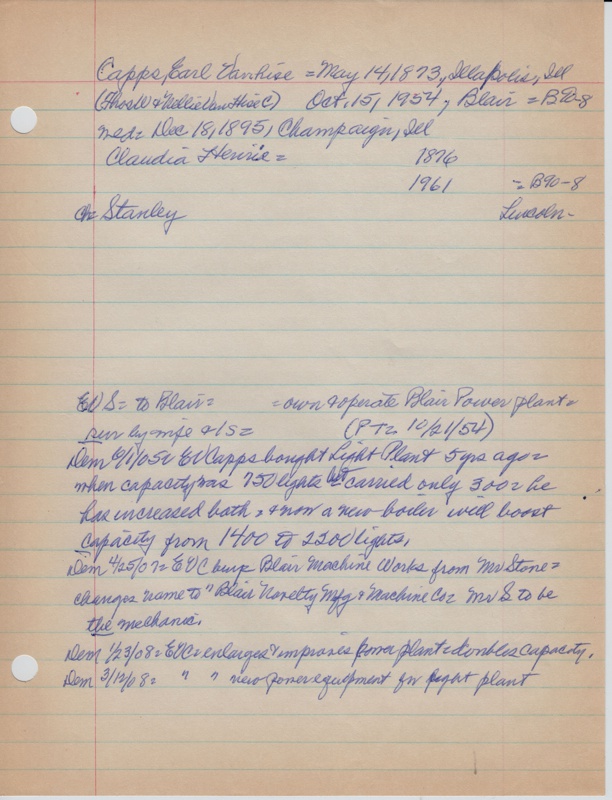 Capps, Earl Vanhise = May 14, 1873, Illapolis, Ill
& Nellie VanHise C) Oct. 15, 1954, Blair = B90-8
med = Dec 18, 1895, Champaign, Ill
Claudia Henrie = 1876
1961 = B90-8
ch = Stanley Lincoln -
= to Blair = = own & operate Blair Power plant =
sur by mfe & 1S = (PT = 10/21/54)
Dem 6/1/05 = EVCapps bought Light Plant 5 yrs ago =
when capacity was 750 lights but carried only 300 = he
has increased both, & now a new boiler will boost
capacity from 1400 to 2200 lights.
Dem 4/25/07 = EVC buys Blair Machine Works from Mr Stone =
changes name to "Blair Novelty Mfg & Machine Co = Mr S to be
the mechanic.
Dem 1/23/08 = EVC = enlarges & improves power plant = doubles capacity.
Dem 3/12/08 = " " new power equipment for light plant